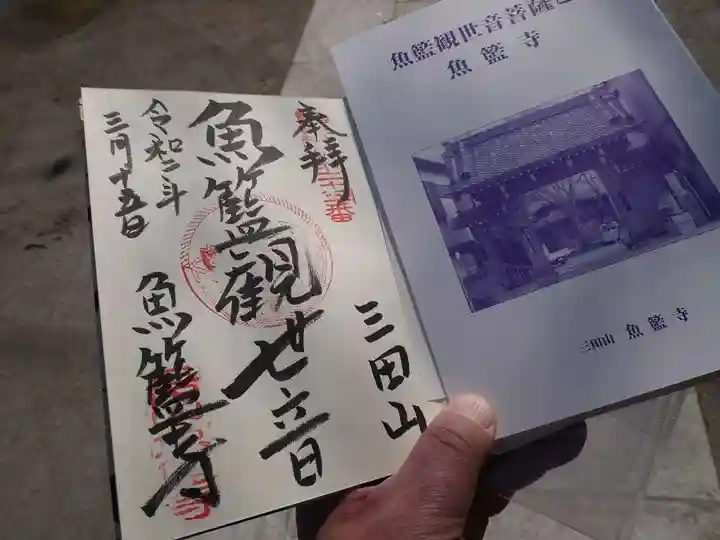 奉拝
三田山
魚籃観世音
魚籃寺
令和二年
三月十五日
魚籃観世音菩薩
魚籃寺
三田山 魚籃寺